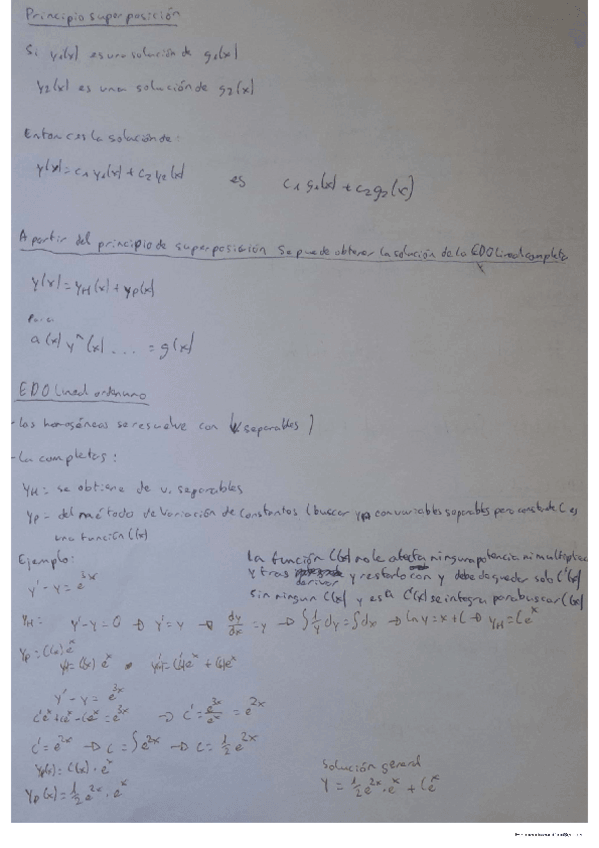 Principio superposición
Si y₁(x) es una solución de g₁(x)
y₂(x) es una solución de g₂(x)
Entonces la solución de:
y(x)=c₁y₁(x)+c₂y₂(x) es c₁g₁(x)+c₂g₂(x)
A partir del principio de superposición se puede obtener la solución de la EDO lineal completa
y(x)=y_H(x)+y_P(x)
para
a(x)yⁿ(x)...=g(x)
EDO lineal orden uno
-Las homogéneas se resuelve con (v. separables)
-La completas:
y_H = se obtiene de v. separables
y_P = del método de Variación de Constantos (buscar y_P con variables separables pero constate C es
una función C(x)
Ejemplo:
y'-y=e^{3x}
La función C(x) no le afecta ninguna potencia ni multiplica
y tras derivar y restarlo con y debe de quedar solo C'(x)
sin ningun C(x) y esa C'(x) se integra para buscar C(x)
y_H: y'-y=0 → y'=y → dy/dx=y → ∫1/y dy=∫dx → ln y=x+C → y_H=Ce^x
y_P=C(x)e^x
y=C(x)e^x y'=C'(x)e^x+C(x)e^x
y'-y=e^{3x}
C'e^x+Ce^x-Ce^x=e^{3x} → C'=e^{3x}/e^x=e^{2x}
C'=e^{2x} → C=∫e^{2x} → C=1/2e^{2x}
y_P(x)=C(x)·e^x
y_P(x)=1/2e^{2x}·e^x
Solución general
y=1/2e^{2x}·e^x+Ce^x